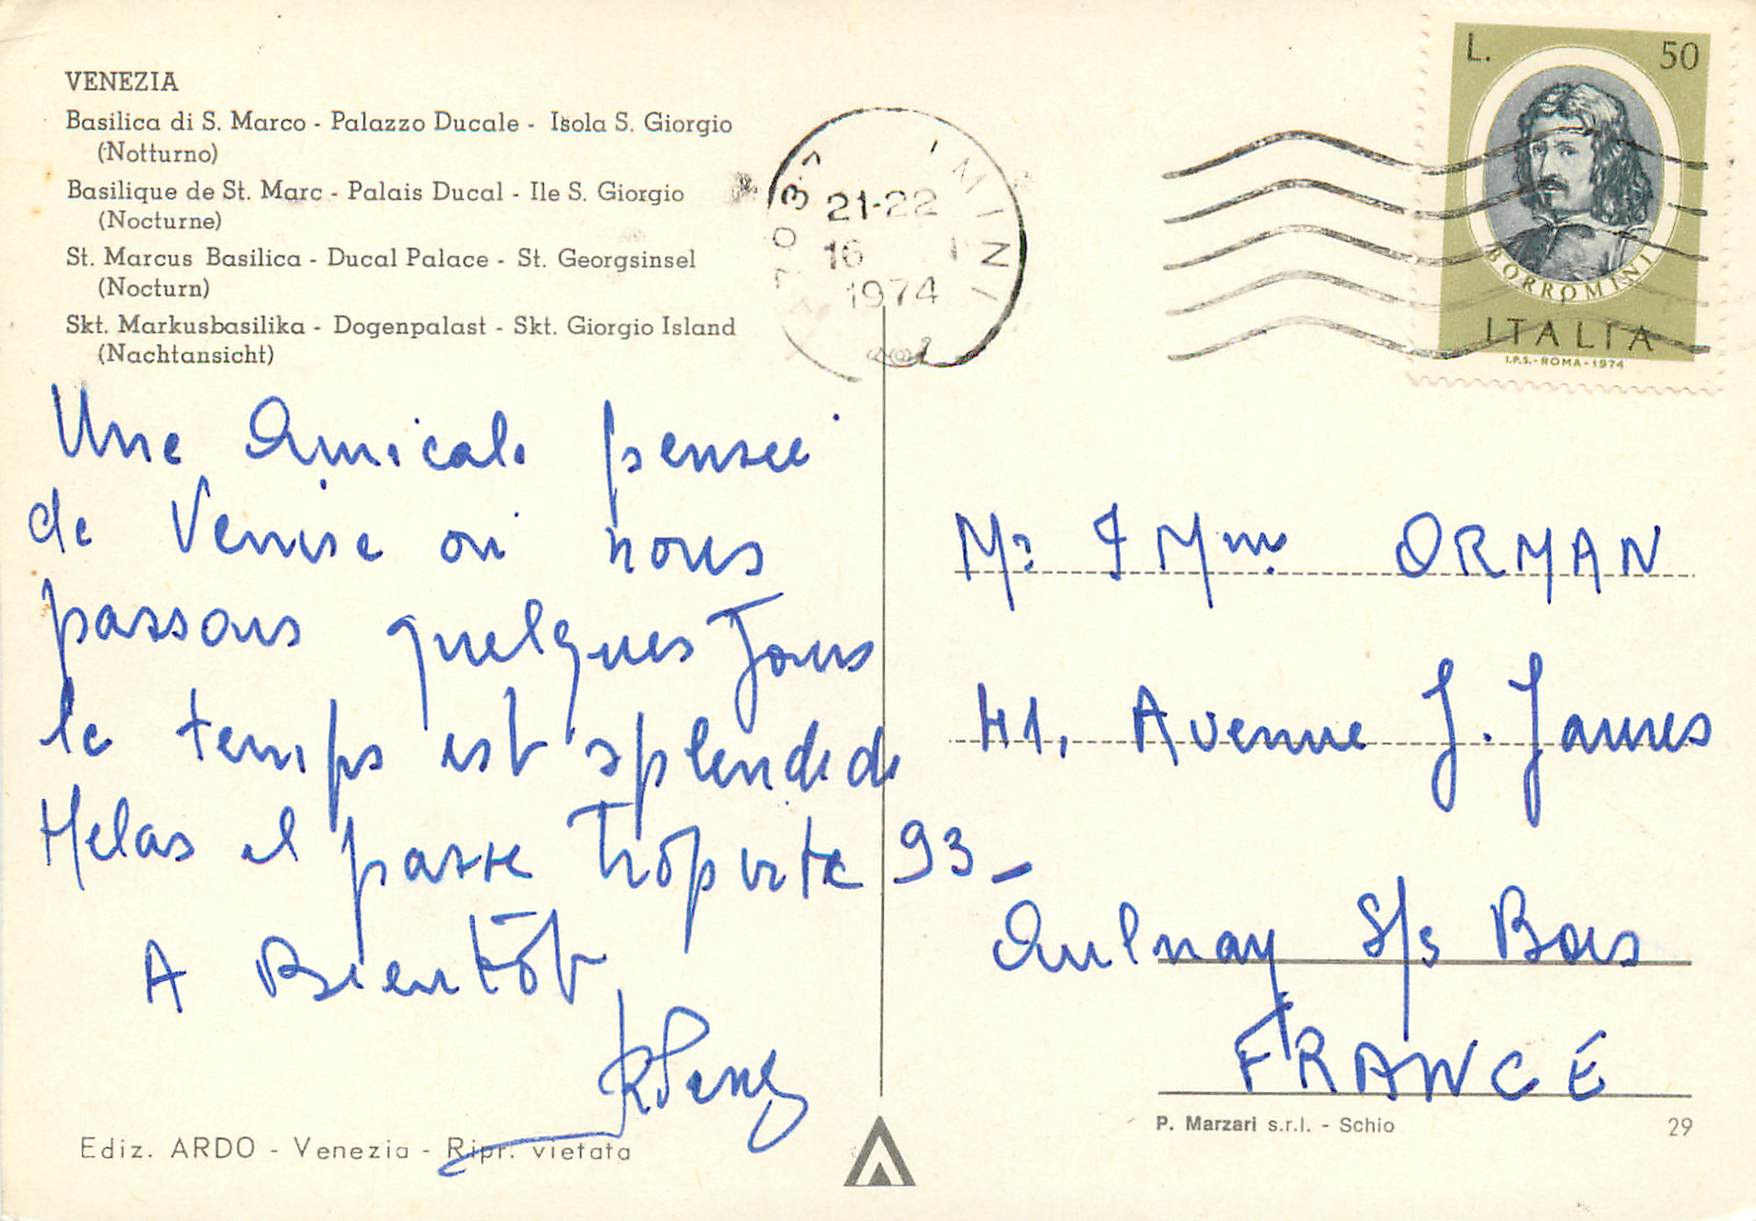 VENEZIA
Basilica di S. Marco - Palazzo Ducale - Isola S. Giorgio
(Notturno)
Basilique de St. Marc - Palais Ducal - Ile S. Giorgio
(Nocturne)
St. Marcus Basilica - Ducal Palace - St. Georgsinsel
(Nocturn)
Skt. Markusbasilika - Dogenpalast - Skt. Giorgio Island
(Nachtansicht)
21-22
16
1974
L. 50
BORROMINI
ITALIA
I.P.S. - ROMA - 1974
Une Amicale pensée
de Venise où nous
passons quelques Jours
le temps est splendide
Helas il passe Trop vite
A Bientôt
Mr & Mme ORMAN
41, Avenue J. Jaures
93 -
Aulnay S/s Bois
FRANCE
Ediz. ARDO - Venezia - Ripr. vietata
P. Marzari s.r.l. - Schio 29